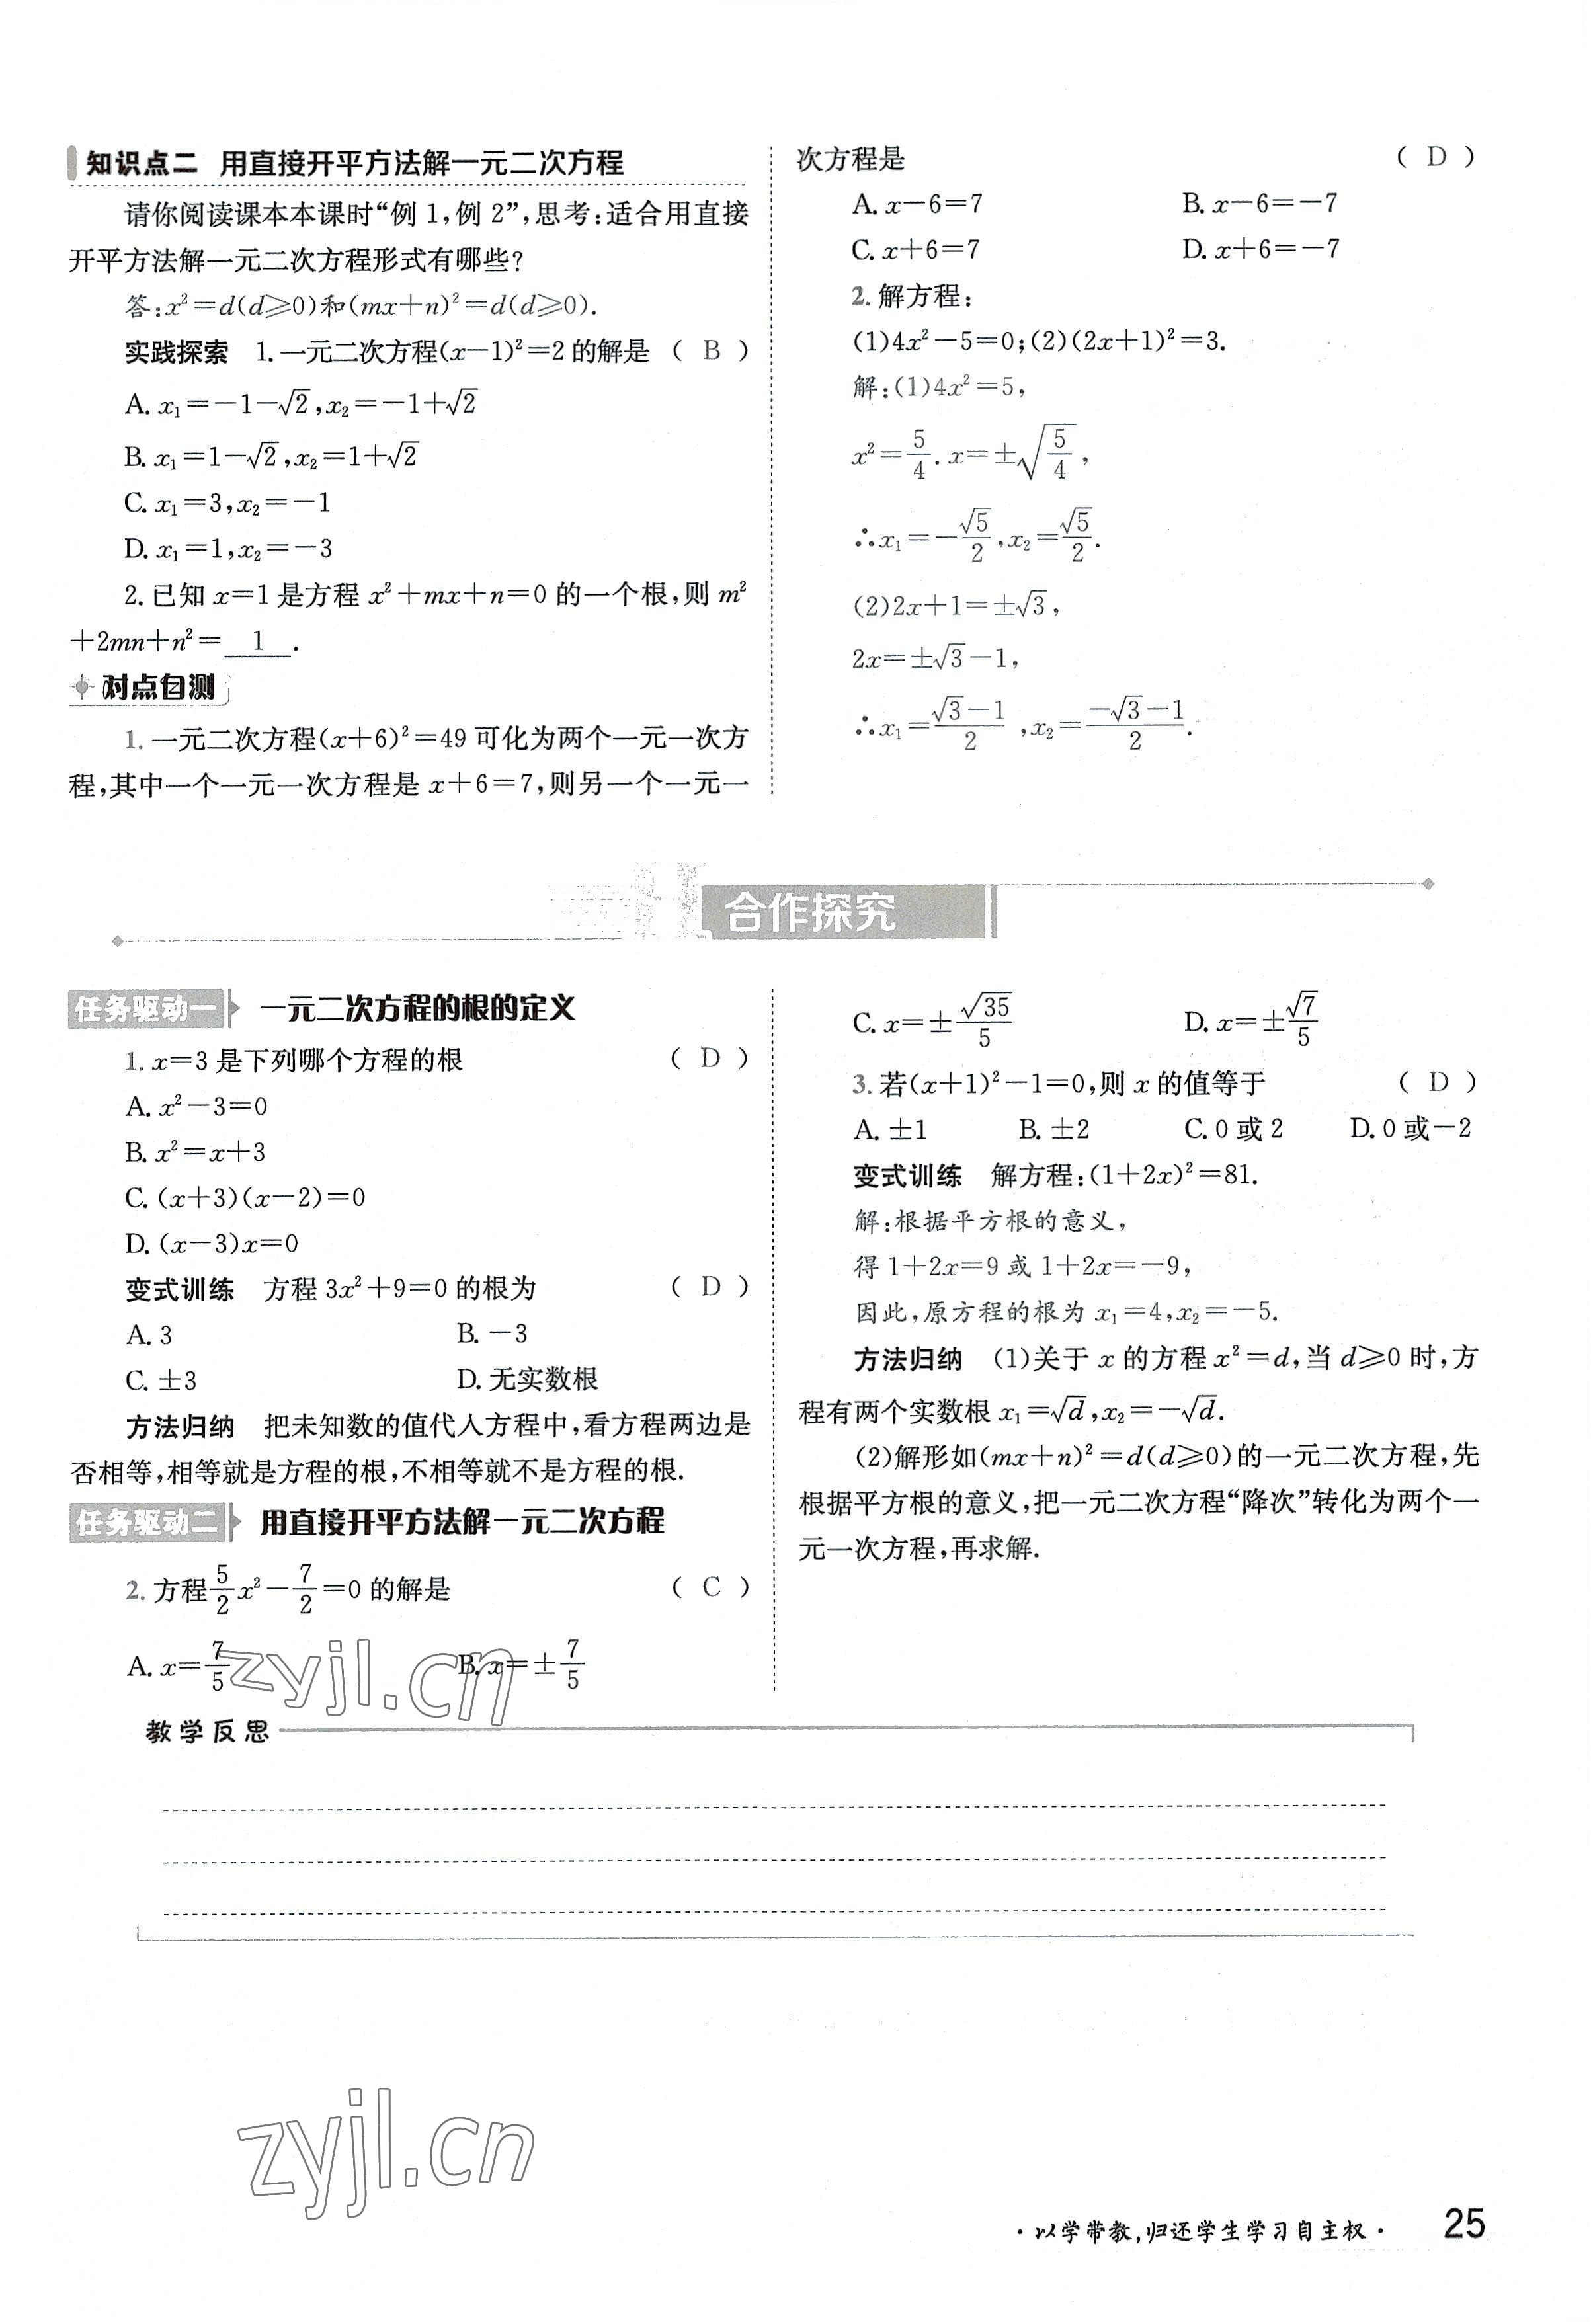 知识点二 用直接开平方法解一元二次方程
请你阅读课本本课时“例1,例2”,思考:适合用直接
开平方法解一元二次方程形式有哪些?
答:x²=d(d≥0)和(mx+n)²=d(d≥0).
实践探索 1.一元二次方程(x-1)²=2的解是 ( B )
A. x₁=-1-√2,x₂=-1+√2
B. x₁=1-√2,x₂=1+√2
C. x₁=3,x₂=-1
D. x₁=1,x₂=-3
2.已知x=1是方程x²+mx+n=0的一个根,则m²
+2mn+n²= 1 .
对点自测
1.一元二次方程(x+6)²=49可化为两个一元一次方
程,其中一个一元一次方程是x+6=7,则另一个一元一
次方程是 ( D )
A. x-6=7 B. x-6=-7
C. x+6=7 D. x+6=-7
2.解方程:
(1)4x²-5=0;(2)(2x+1)²=3.
解:(1)4x²=5,
x²=5/4. x=±√(5/4),
∴x₁=-√5/2,x₂=√5/2.
(2)2x+1=±√3,
2x=±√3-1,
∴x₁=(√3-1)/2,x₂=(-√3-1)/2.
合作探究
任务驱动一 一元二次方程的根的定义
1. x=3是下列哪个方程的根 ( D )
A. x²-3=0
B. x²=x+3
C. (x+3)(x-2)=0
D. (x-3)x=0
变式训练 方程3x²+9=0的根为 ( D )
A. 3 B. -3
C. ±3 D. 无实数根
方法归纳 把未知数的值代入方程中,看方程两边是
否相等,相等就是方程的根,不相等就不是方程的根.
任务驱动二 用直接开平方法解一元二次方程
2. 方程5/2x²-7/2=0的解是 ( C )
A. x=7/5 B. x=±7/5
C. x=±√35/5 D. x=±√7/5
3. 若(x+1)²-1=0,则x的值等于 ( D )
A. ±1 B. ±2 C. 0或2 D. 0或-2
变式训练 解方程:(1+2x)²=81.
解:根据平方根的意义,
得1+2x=9或1+2x=-9,
因此,原方程的根为x₁=4,x₂=-5.
方法归纳 (1)关于x的方程x²=d,当d≥0时,方
程有两个实数根x₁=√d,x₂=-√d.
(2)解形如(mx+n)²=d(d≥0)的一元二次方程,先
根据平方根的意义,把一元二次方程“降次”转化为两个一
元一次方程,再求解.
zyjl.cn
教学反思
zyjl.cn
·以学带教,归还学生学习自主权· 25